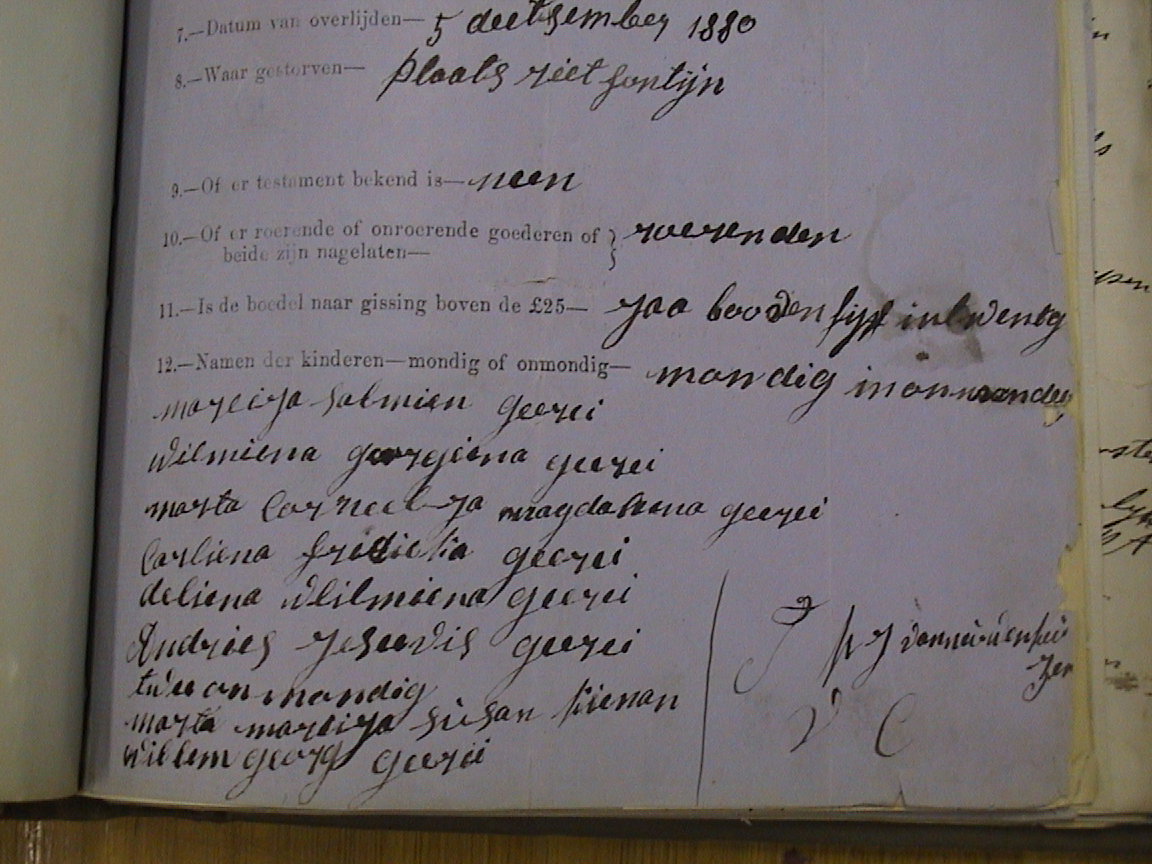 7.—Datum van overlijden— 5 deetsember 1880
8.—Waar gestorven— plaats riet fontijn
9.—Of er testament bekend is— neen
10.—Of er roerende of onroerende goederen of } roerenden
beide zijn nagelaten—
11.—Is de boedel naar gissing boven de £25— jaa booven fijf in twentg
12.—Namen der kinderen—mondig of onmondig— mondig in onmondig
mareija salmien geerei
Wilmiena georgiena geerei
marta Corneelija magdalena geerei
Carliena geerei
deliena Wilmiena geerei
Andries geerei
twee onmondig
marta mareija susan
willem georg geerei
V C